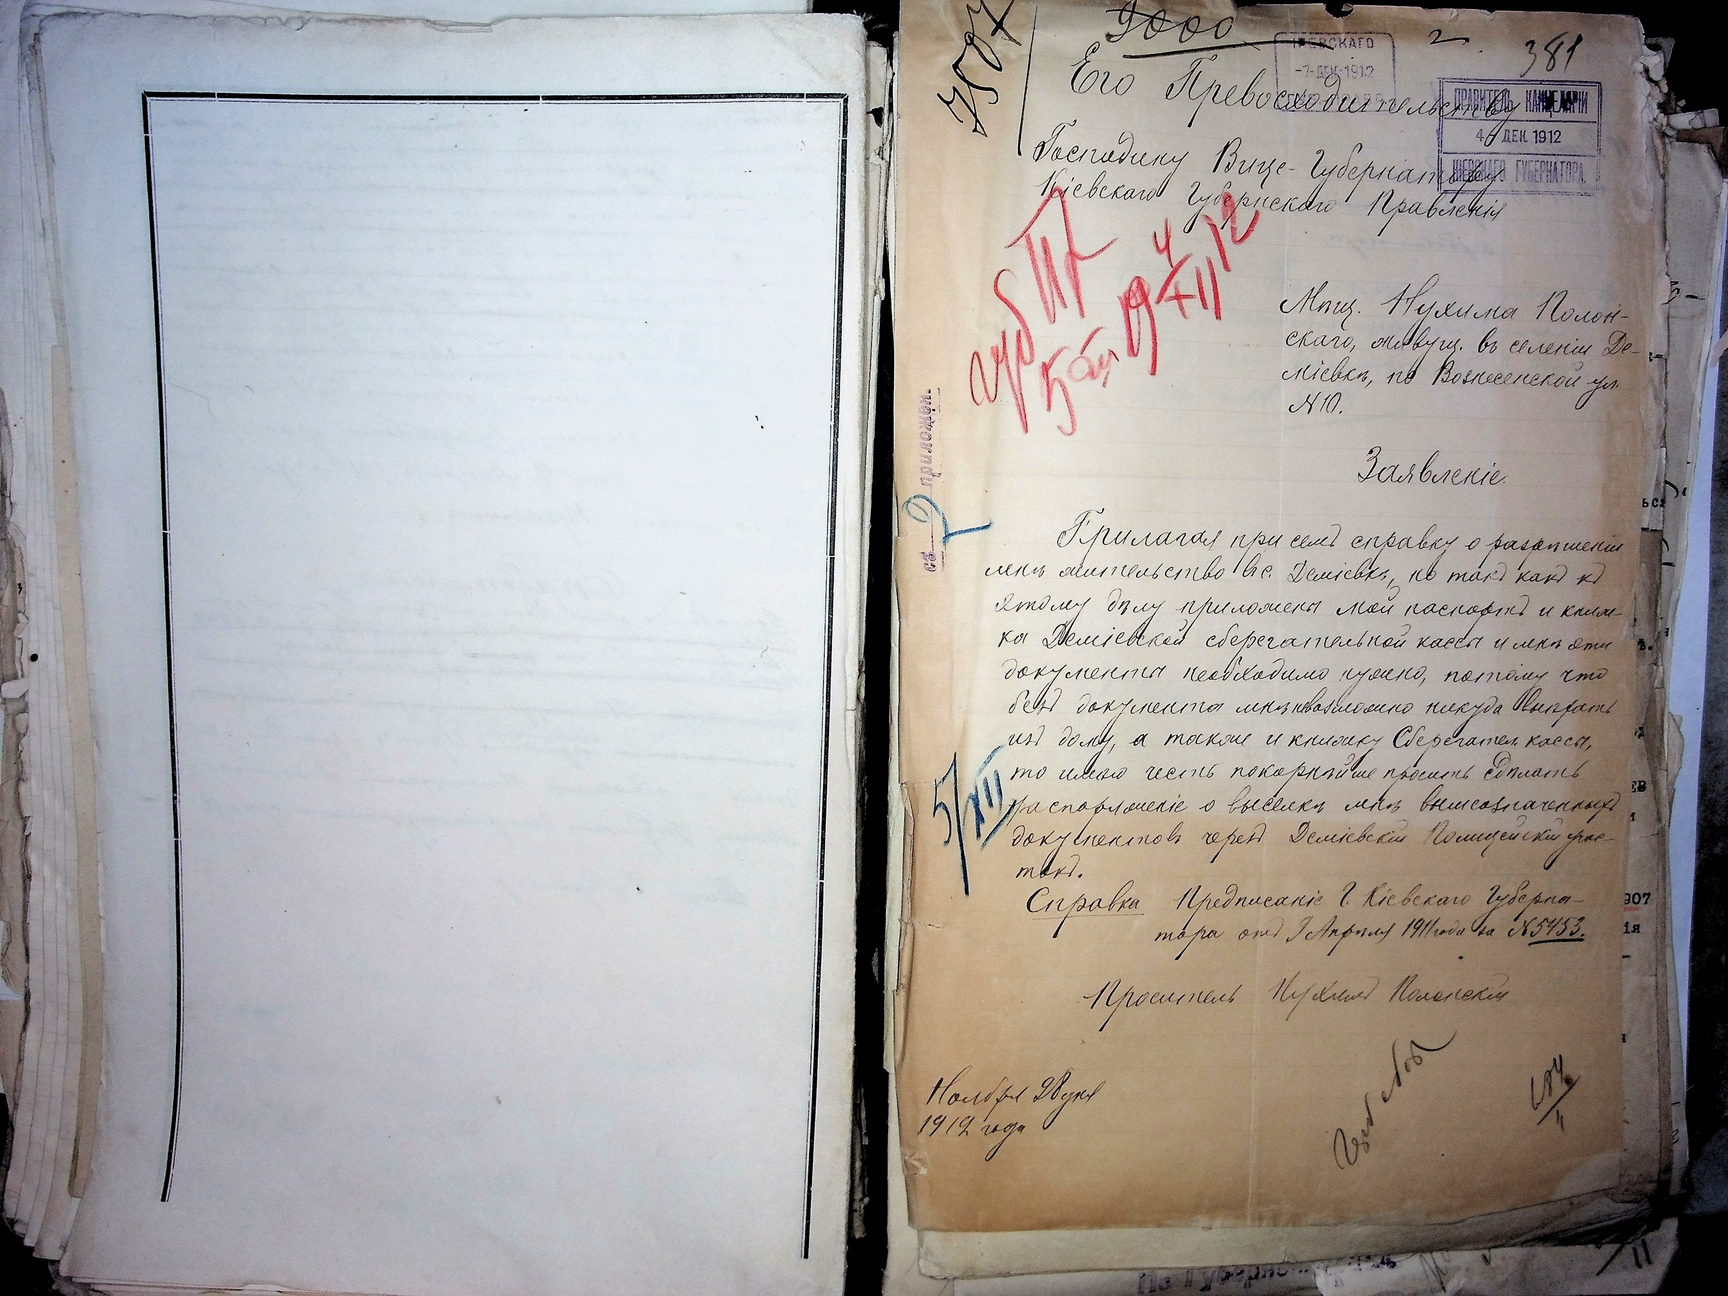 7507
9000
2
381
КІЕВСКАГО
-7 ДЕК 1912
ПРАВИТЕЛЬ КАНЦЕЛЯРІИ
4 ДЕК 1912
КІЕВСКАГО ГУБЕРНАТОРА
Его Превосходительству
Господину Вице-Губернатору
Кіевскаго Губернскаго Правленія
4/XII 12
Мѣщ. Нухима Полон-
скаго, живущ. въ селеніи Де-
міевкѣ, по Вознесенской ул.
№10.
Заявленіе.
съ 2 приложен.
Прилагая при семъ справку о разрѣшеніи
мнѣ жительство въ с. Деміевкѣ, но такъ какъ къ
этому дѣлу приложены мой паспортъ и книж-
ка Деміевской сберегательной кассы и мнѣ эти
документы необходимо нужно, потому что
безъ документа мнѣ невозможно никуда выѣхать
изъ дому, а также и книжку Сберегател. кассы,
то имѣю честь покорнѣйше просить Сдѣлать
распоряженіе о высылкѣ мнѣ вышеозначенныхъ
документовъ черезъ Деміевскій Полицейскій учас-
токъ.
5/XII
Справка Предписаніе Г. Кіевскаго Губерна-
тора отъ 9 Апрѣля 1911 года за №5453.
Проситель Нухимъ Полонскій
Ноября 28 дня
1912 года
907
11